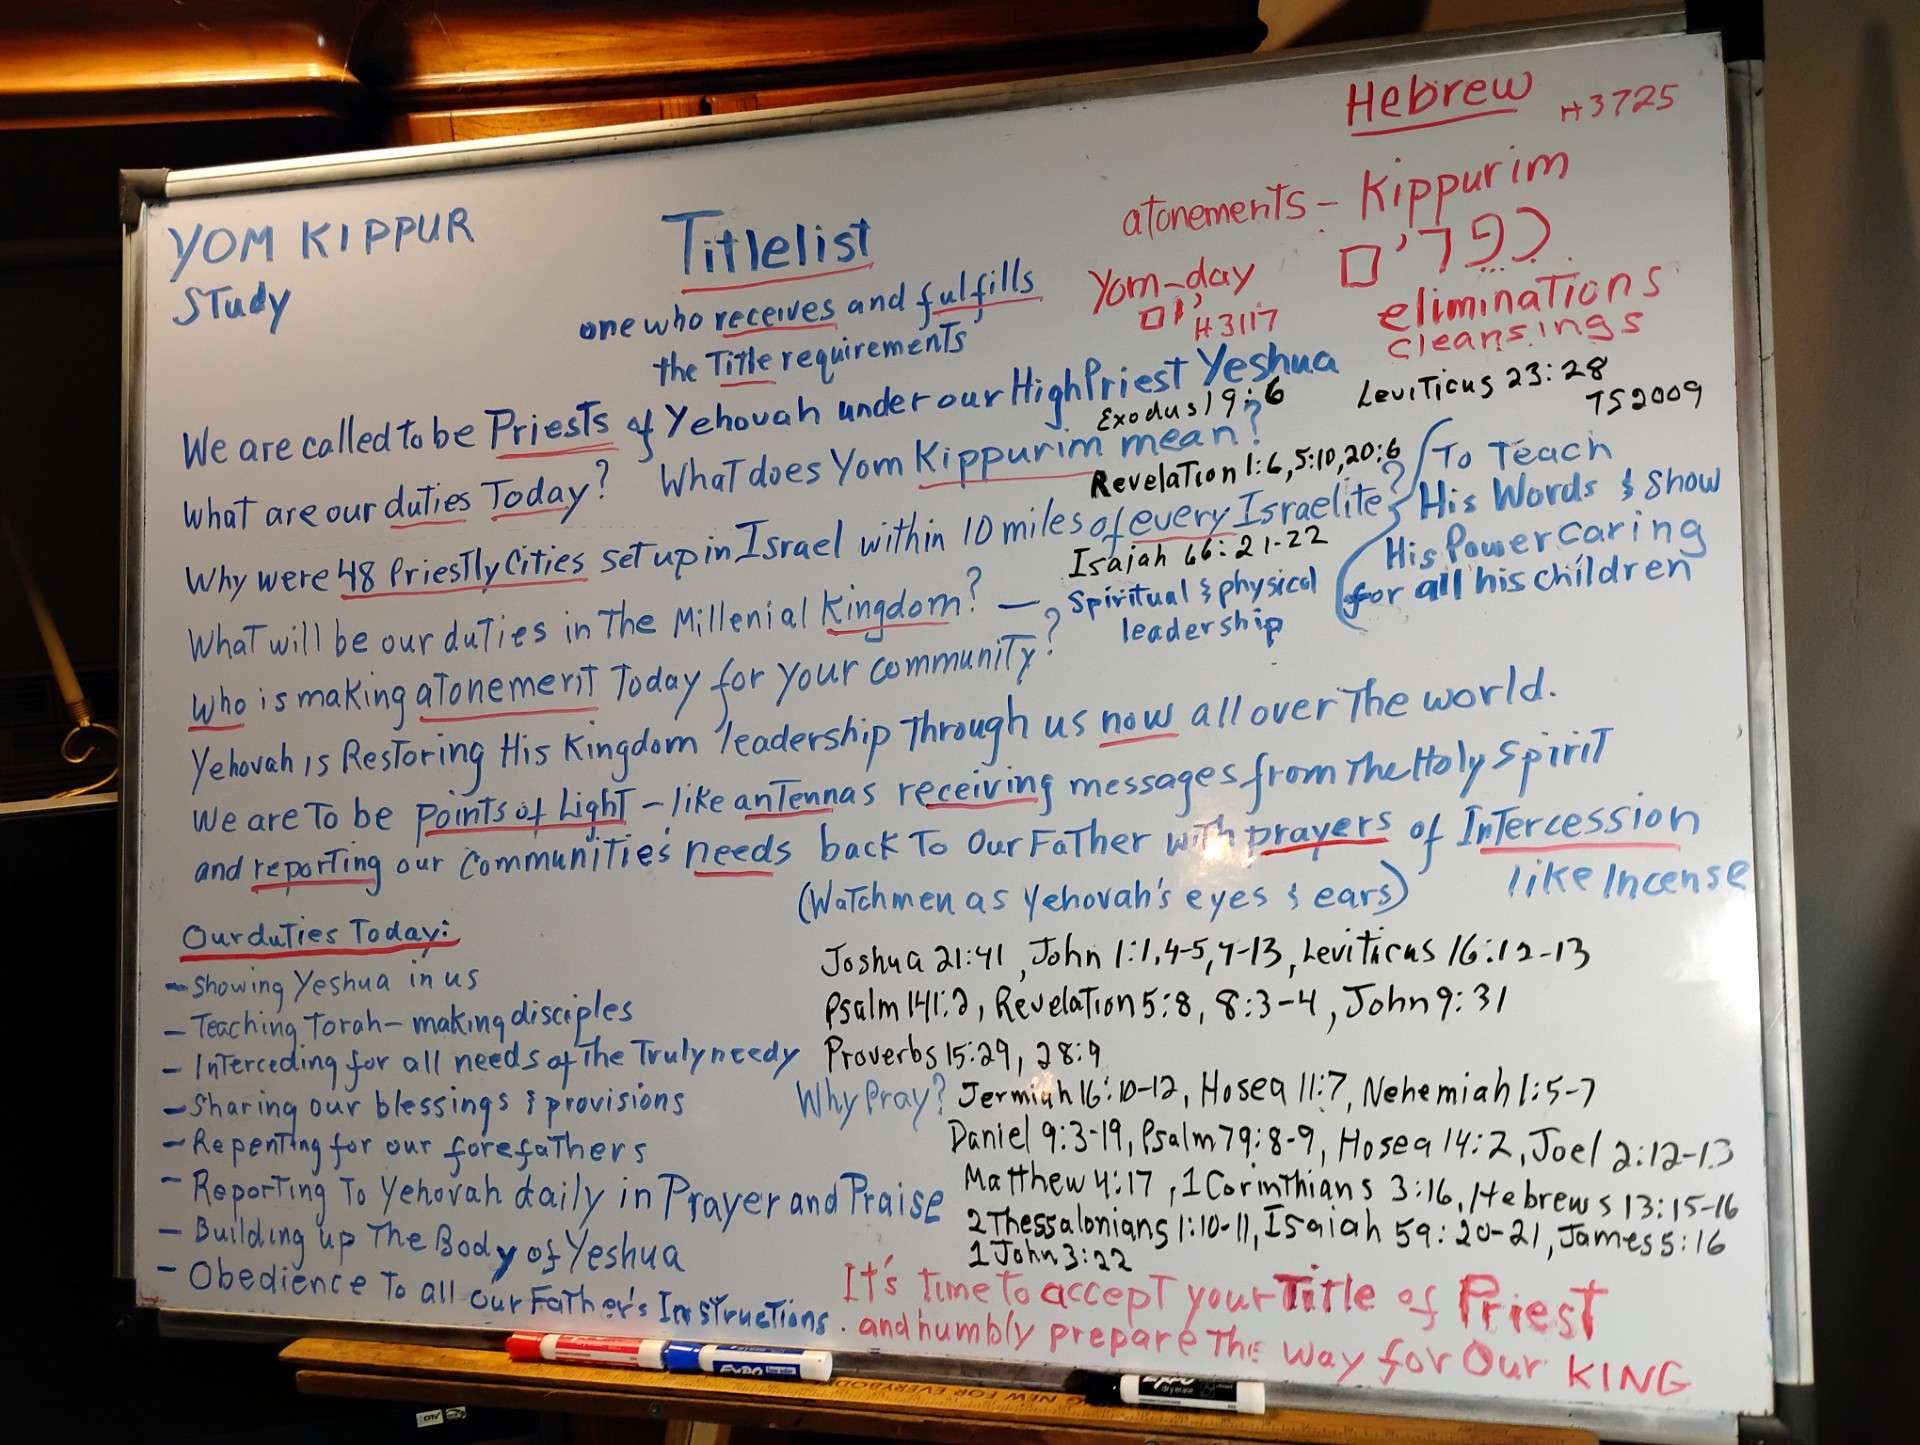 Hebrew H3725
YOM KIPPUR
Study
Titlelist
one who receives and fulfills
the Title requirements
atonements - Kippurim
כפרים
Yom-day
יום H3117
eliminations
cleansings
Leviticus 23:28
TS2009
We are called to be Priests of Yehovah under our High Priest Yeshua
Exodus 19:6
What are our duties Today? What does Yom Kippurim mean?
Revelation 1:6, 5:10, 20:6
Why were 48 Priestly Cities set up in Israel within 10 miles of every Israelite?
To Teach
His Words & Show
His Power caring
for all his children
Isaiah 66:21-22
What will be our duties in The Millenial Kingdom? — Spiritual & physical
leadership
Who is making atonement Today for your community?
Yehovah is Restoring His Kingdom leadership Through us now all over The world.
We are To be points of Light - like antennas receiving messages from The Holy Spirit
and reporting our communities needs back To Our Father with prayers of Intercession
like Incense
(Watchmen as Yehovah's eyes & ears)
Our duties Today:
- Showing Yeshua in us
- Teaching Torah - making disciples
- Interceding for all needs of The Truly needy
- Sharing our blessings & provisions
- Repenting for our forefathers
- Reporting To Yehovah daily in Prayer and Praise
- Building up The Body of Yeshua
- Obedience To all our Father's Instructions.
Joshua 21:41, John 1:1,4-5, 7-13, Leviticus 16:12-13
Psalm 141:2, Revelation 5:8, 8:3-4, John 9:31
Proverbs 15:29, 28:9
Why Pray? Jermiah 16:10-12, Hosea 11:7, Nehemiah 1:5-7
Daniel 9:3-19, Psalm 79:8-9, Hosea 14:2, Joel 2:12-13
Matthew 4:17, 1 Corinthians 3:16, Hebrews 13:15-16
2 Thessalonians 1:10-11, Isaiah 59:20-21, James 5:16
1 John 3:22
It's time to accept your Title of Priest
and humbly prepare The way for Our KING
EXPO
EXPO
dry erase
NEW FOR EVERYBODY